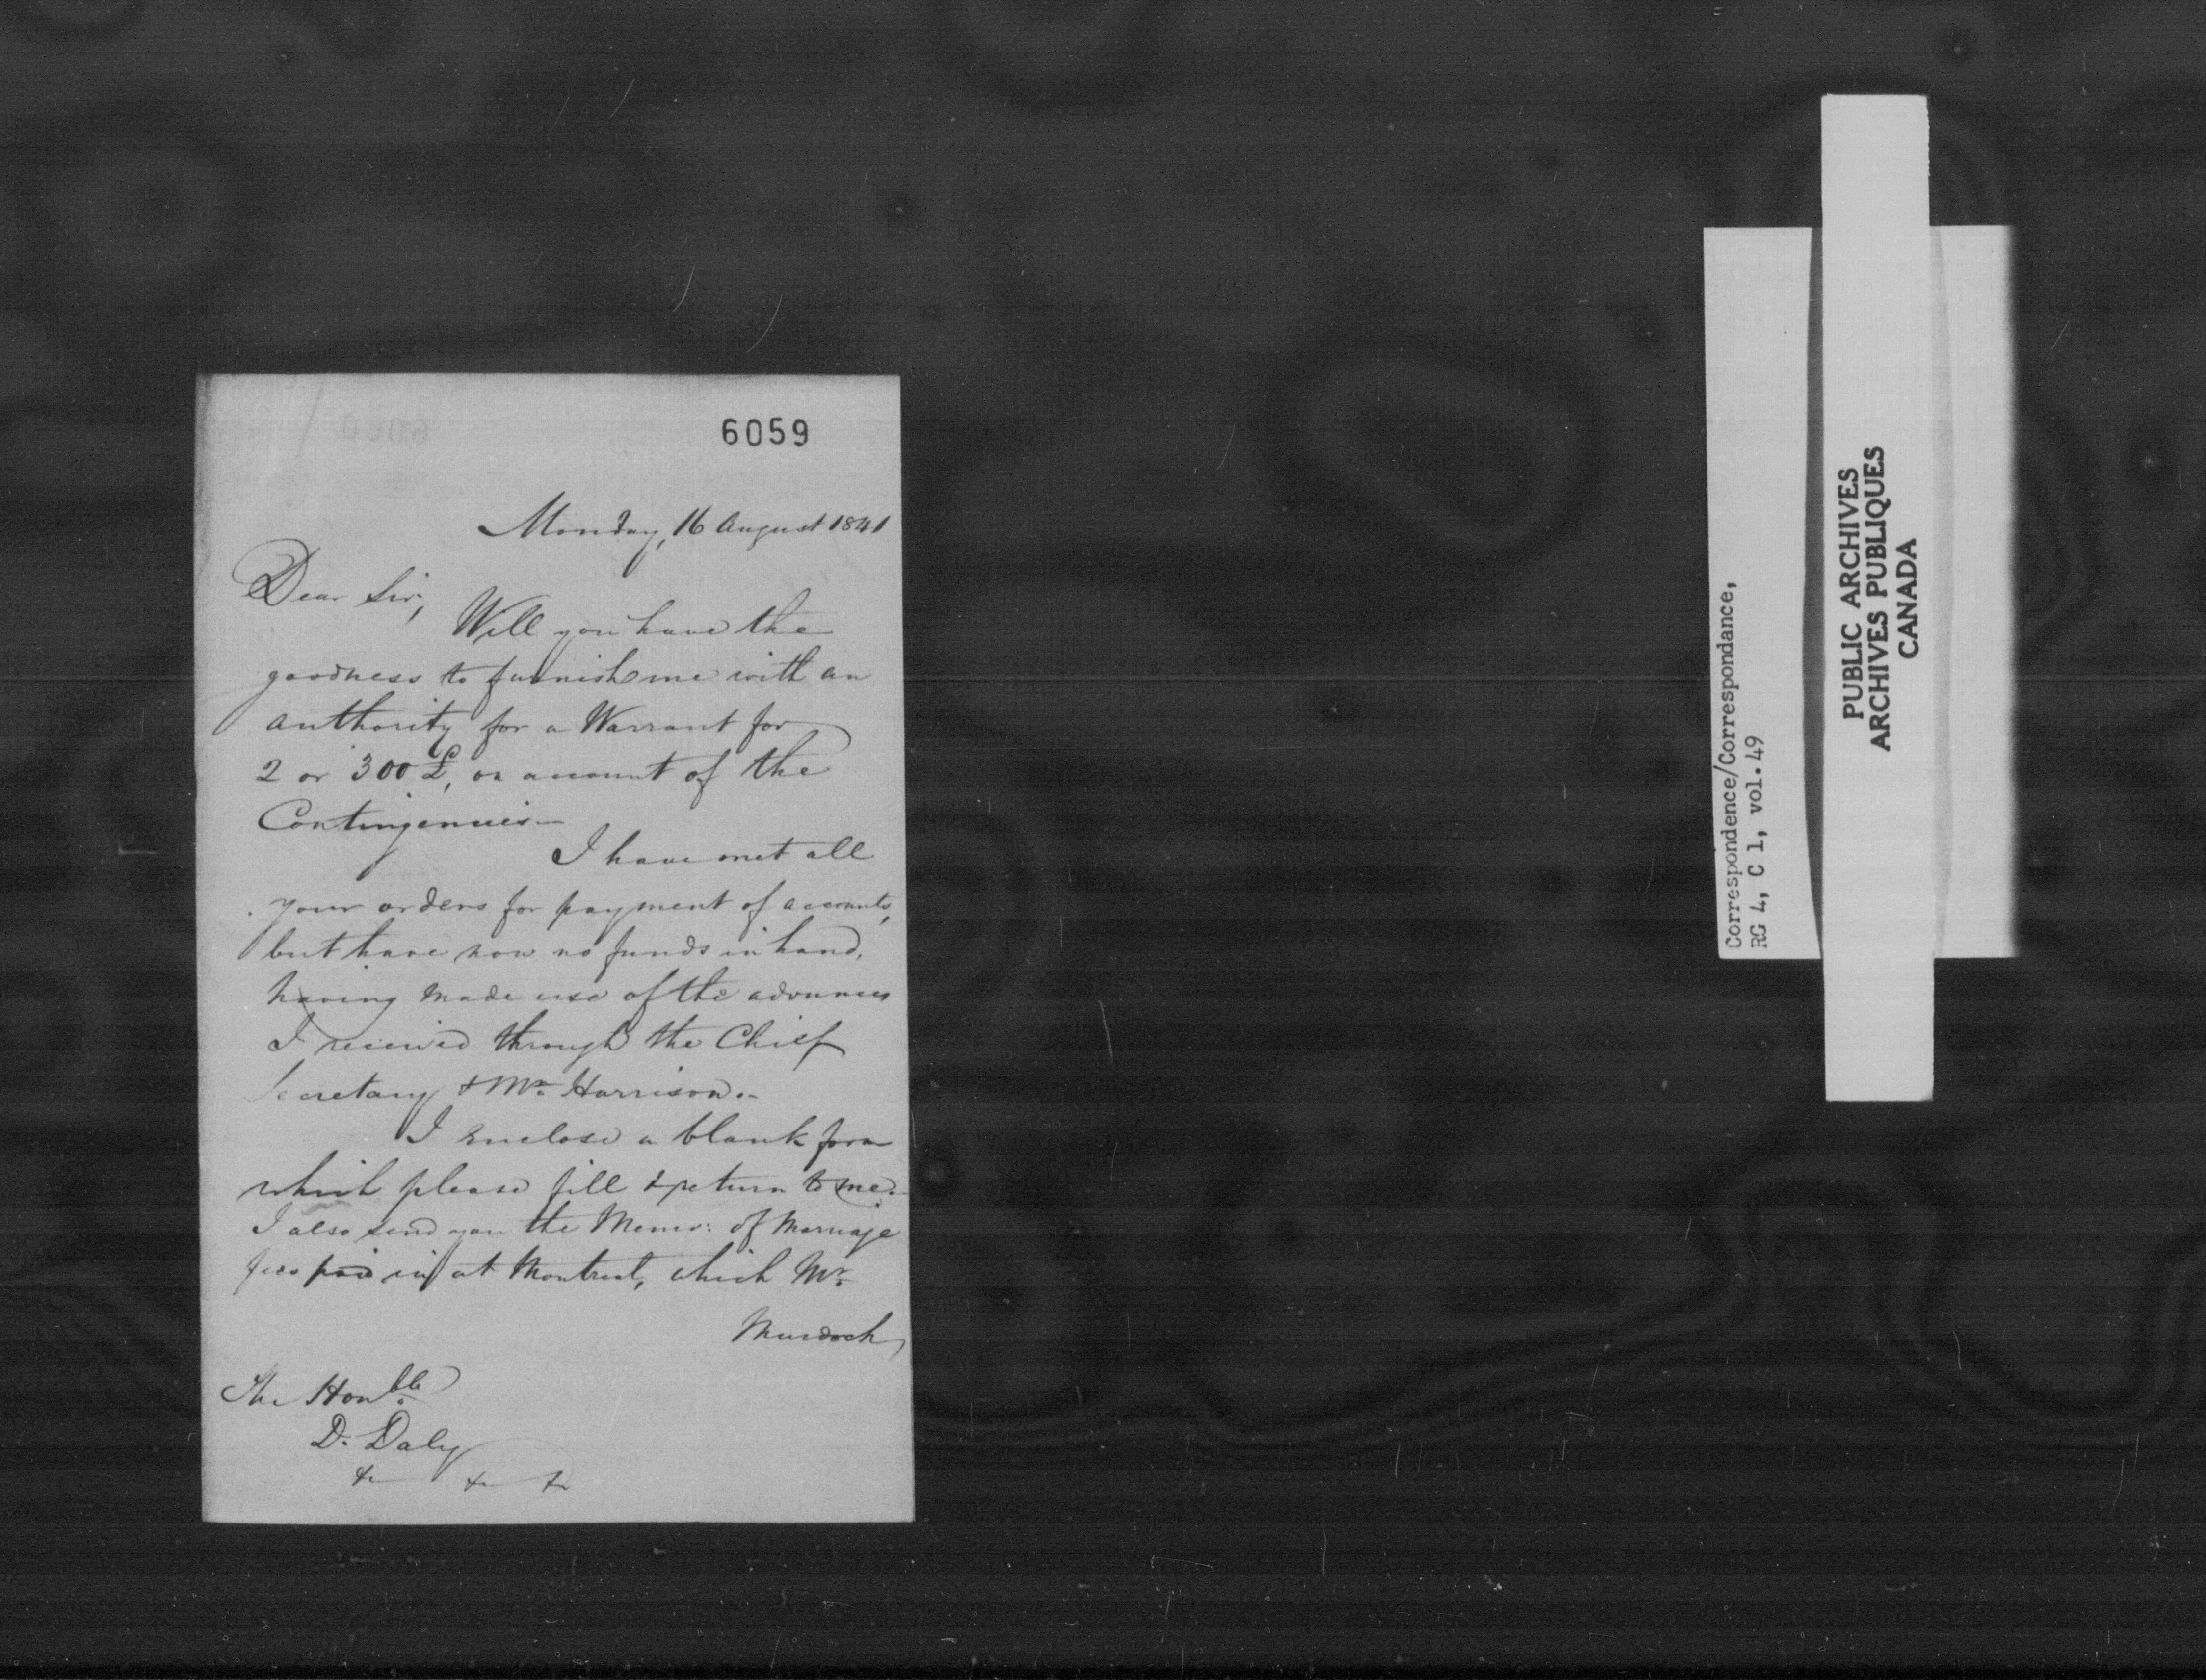 6059
Monday, 16 August 1841
Dear Sir,
Will you have the
goodness to furnish me with an
authority for a Warrant for
2 or 300£, on account of the
Contingencies—
I have met all
your orders for payment of accounts,
but have now no funds in hand,
having made use of the advances
I received through the Chief
Secretary & Mr. Harrison.—
I enclose a blank form
which please fill & return to me.
I also send you the Memo: of Marriage
fees paid in at Montreal, which Mr.
Murdoch,
The Honble.
D. Daly
&c &c &c
Correspondence/Correspondance,
RG 4, C 1, vol.49
PUBLIC ARCHIVES
ARCHIVES PUBLIQUES
CANADA